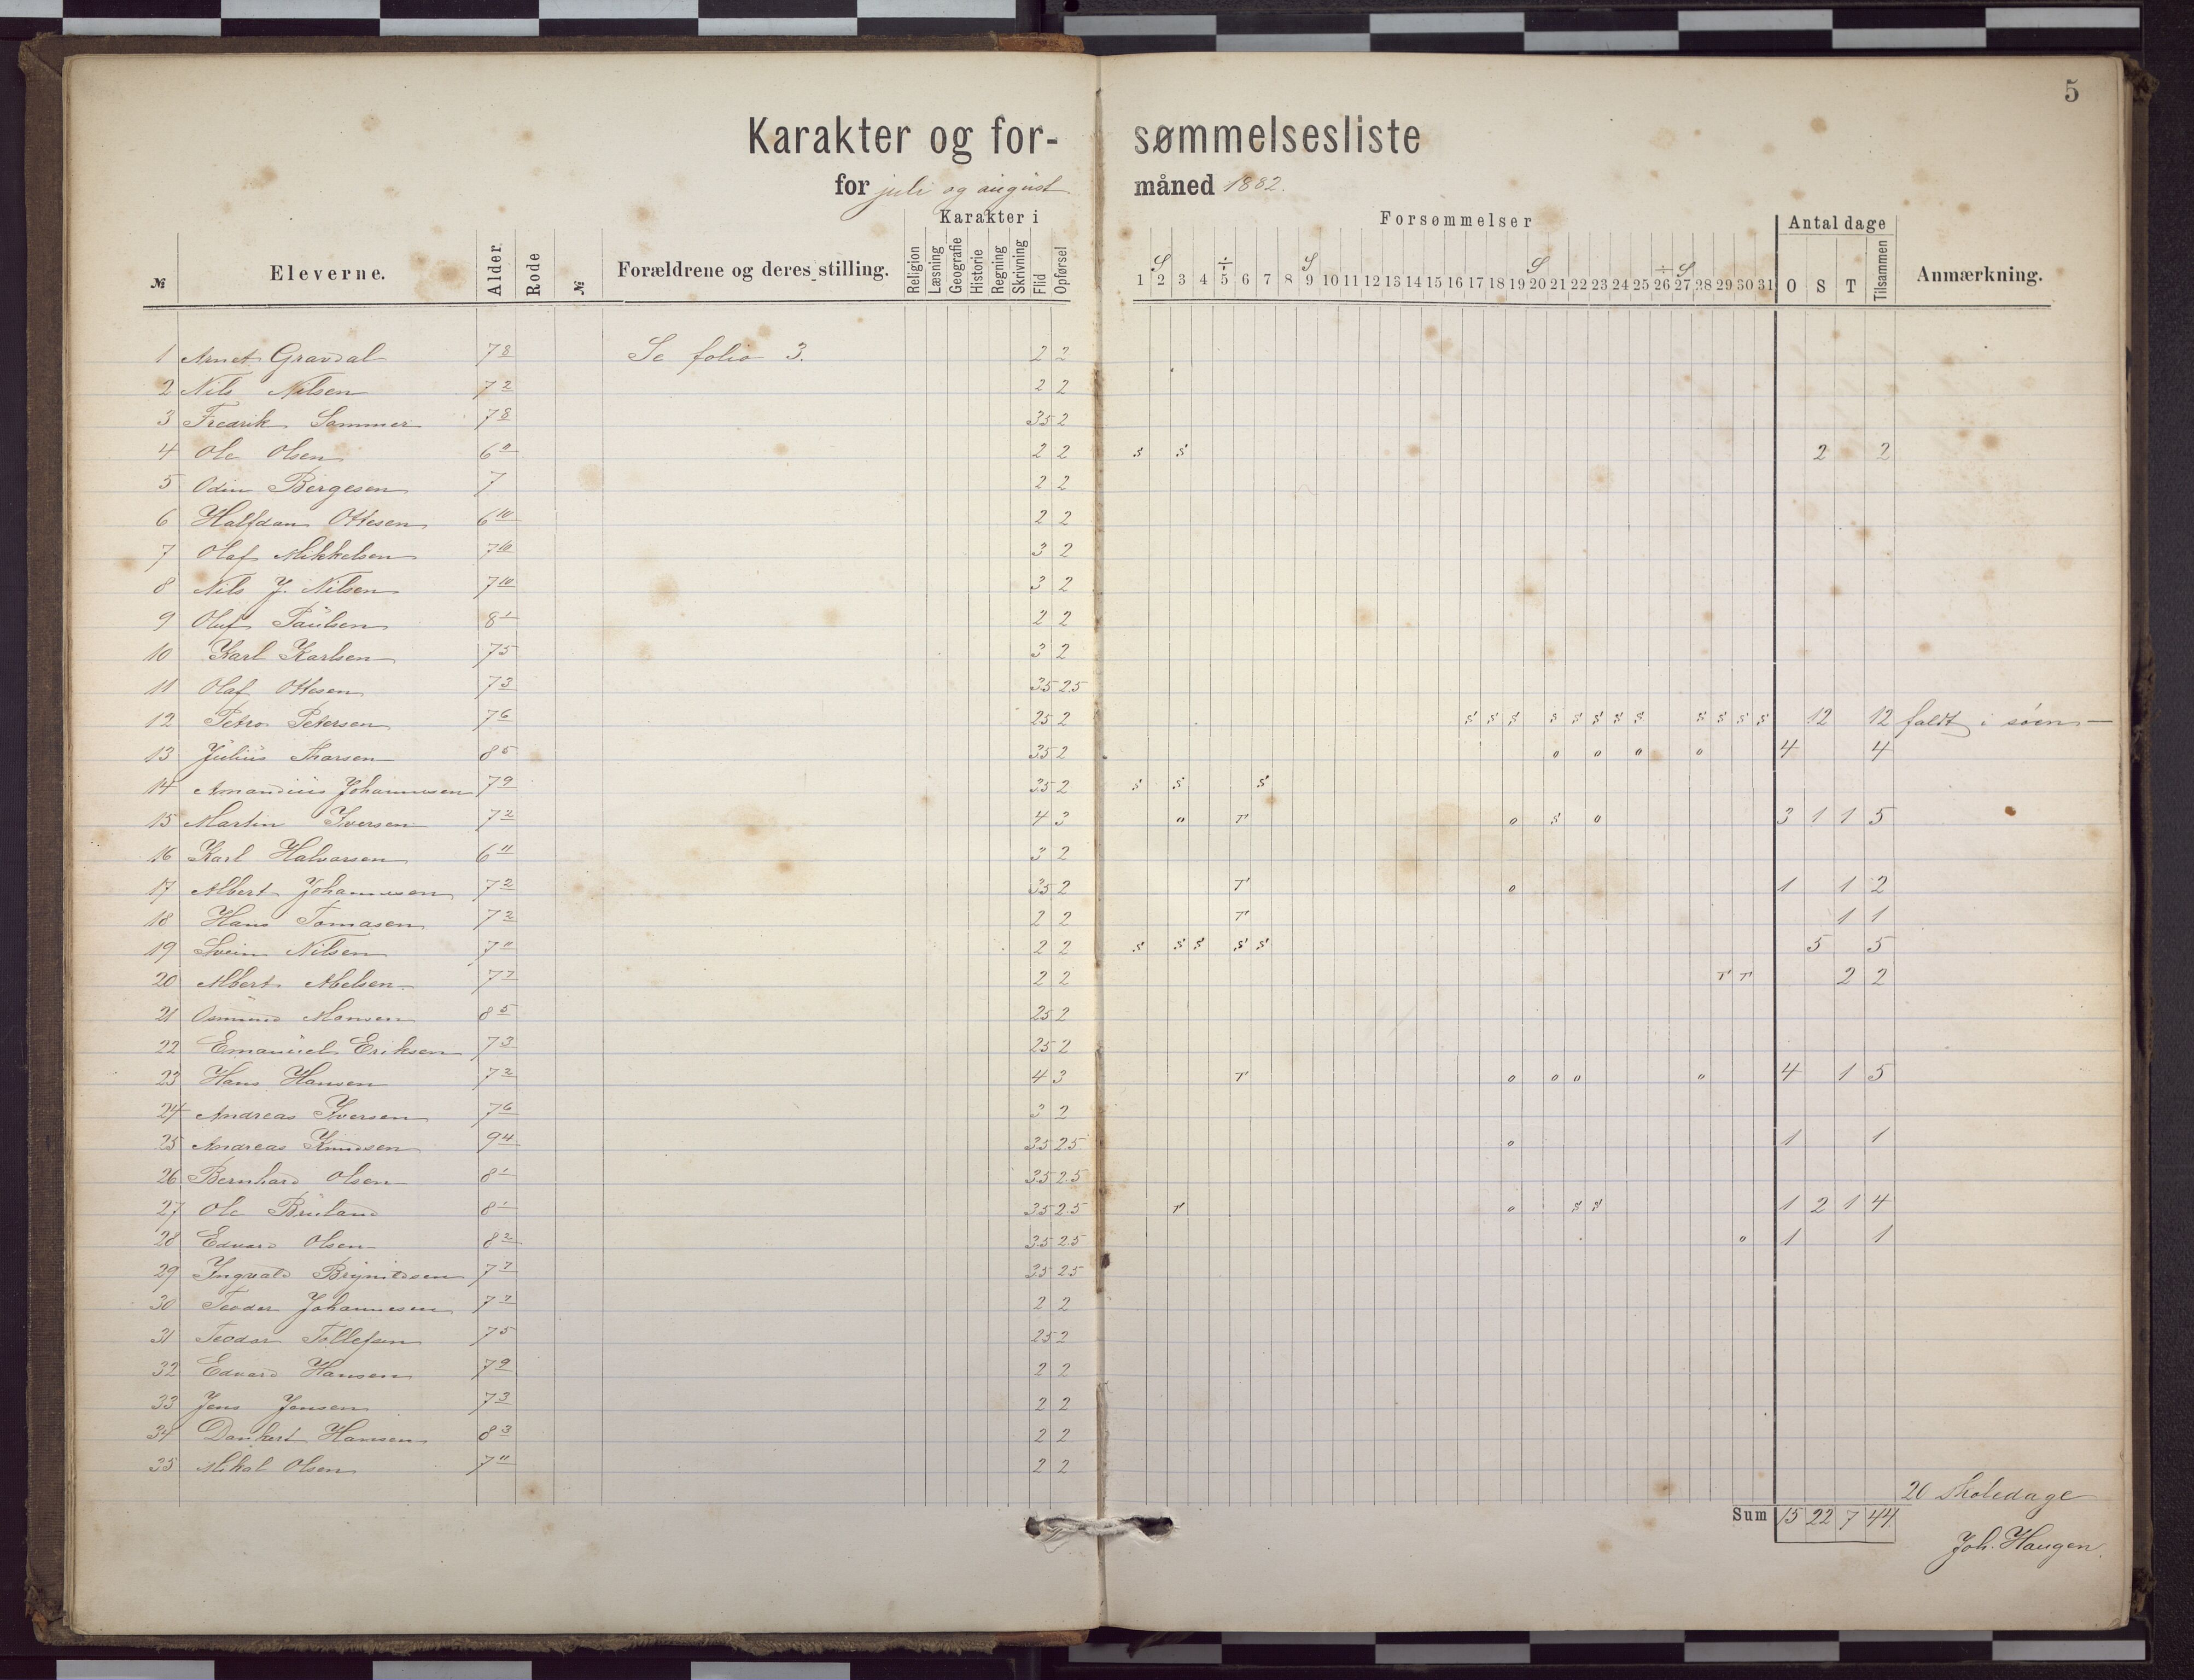 5
Karakter og for- sømmelsesliste
for juli og august måned 1882.
Karakter i Forsømmelser Antal dage
№ Eleverne. Alder. Rode № Forældrene og deres stilling. Religion Læsning Geografie Historie Regning Skrivning Flid Opførsel 1 2 3 4 5 6 7 8 9 10 11 12 13 14 15 16 17 18 19 20 21 22 23 24 25 26 27 28 29 30 31 O S T Tilsammen Anmærkning.
S ÷ S S ÷ S
1 Arnet Gravdal 7 8 Se folio 3. 2 2
2 Nils Nilsen 7 2 2 2
3 Fredrik Sommer 7 8 35 2
4 Ole Olsen 6 9 2 2 s s 2 2
5 Odin Bergesen 7 2 2
6 Halfdan Ottesen 6 10 2 2
7 Olaf Mikkelsen 7 10 3 2
8 Nils J. Nilsen 7 10 3 2
9 Oluf Paulsen 8 1 2 2
10 Karl Karlsen 7 5 3 2
11 Olaf Ottesen 7 3 35 2.5
12 Petro Petersen 7 6 25 2 s s s s s s s s s s s s 12 12 faldt i søen
13 Julius Thorsen 8 5 35 2 o o o o 4 4
14 Amandius Johannesen 7 9 35 2 s s s
15 Martin Iversen 7 2 4 3 o T o s o 3 1 1 5
16 Karl Halvorsen 6 11 3 2
17 Albert Johannesen 7 2 35 2 T o 1 1 2
18 Hans Tomasen 7 2 2 2 T 1 1
19 Svein Nilsen 7 11 2 2 s s s s s 5 5
20 Albert Abelsen 7 7 2 2 T T 2 2
21 Osmund Monsen 8 5 25 2
22 Emanuel Eriksen 7 3 25 2
23 Hans Hansen 7 2 4 3 T o o o o 4 1 5
24 Andreas Iversen 7 6 3 2
25 Andreas Knudsen 9 4 35 2.5 o 1 1
26 Bernhard Olsen 8 1 3.5 2.5
27 Ole Bruland 8 1 35 2.5 T o s s 1 2 1 4
28 Edvard Olsen 8 2 3.5 2.5 o 1 1
29 Ingvald Brynildsen 7 7 35 25
30 Teodor Johannesen 7 7 2 2
31 Teodor Tollefsen 7 5 25 2
32 Edvard Hansen 7 9 2 2
33 Jens Jensen 7 3 2 2
34 Dankert Hansen 8 3 2 2
35 Mikal Olsen 7 11 2 2
20 skoledage
Sum 15 22 7 44
Joh. Haugen.